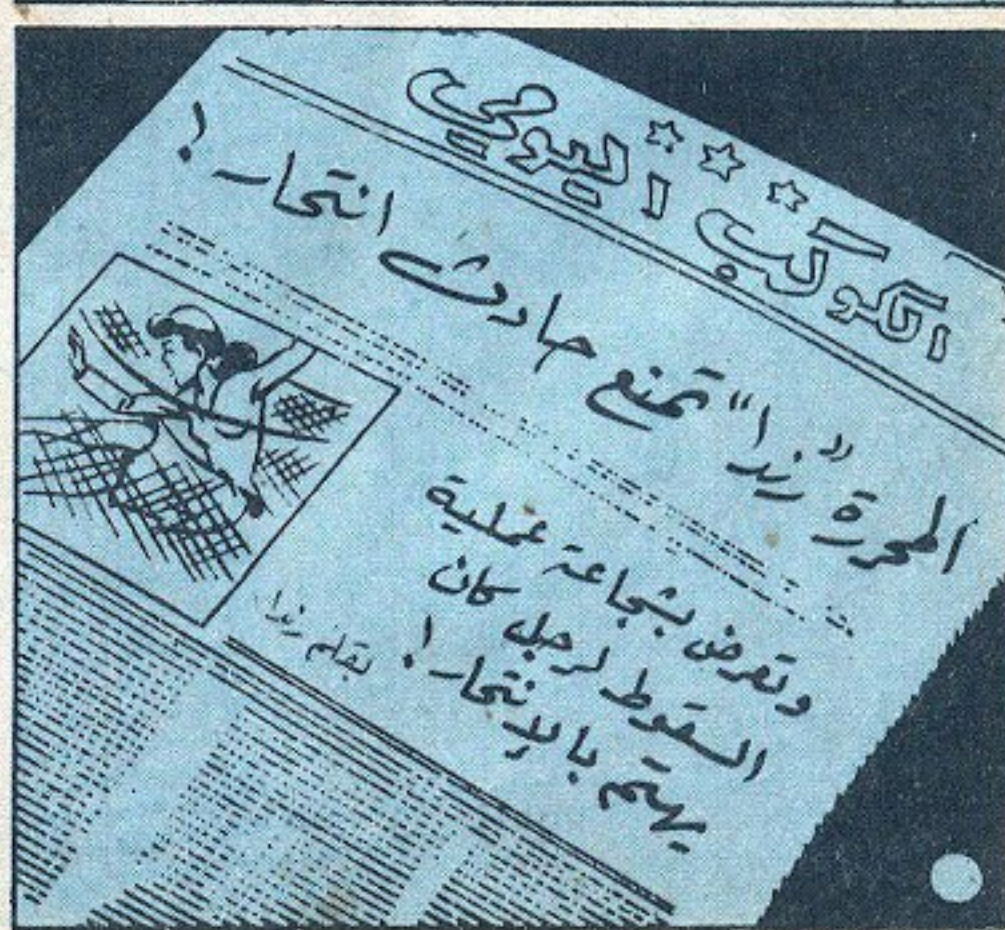 الكوكب اليومي
المحررة "رندا" تمنع حادث انتحار !
وتعرض بشجاعة عملية
السقوط لرجل كان
يهتم بالإنتحار !
بقلم رندا